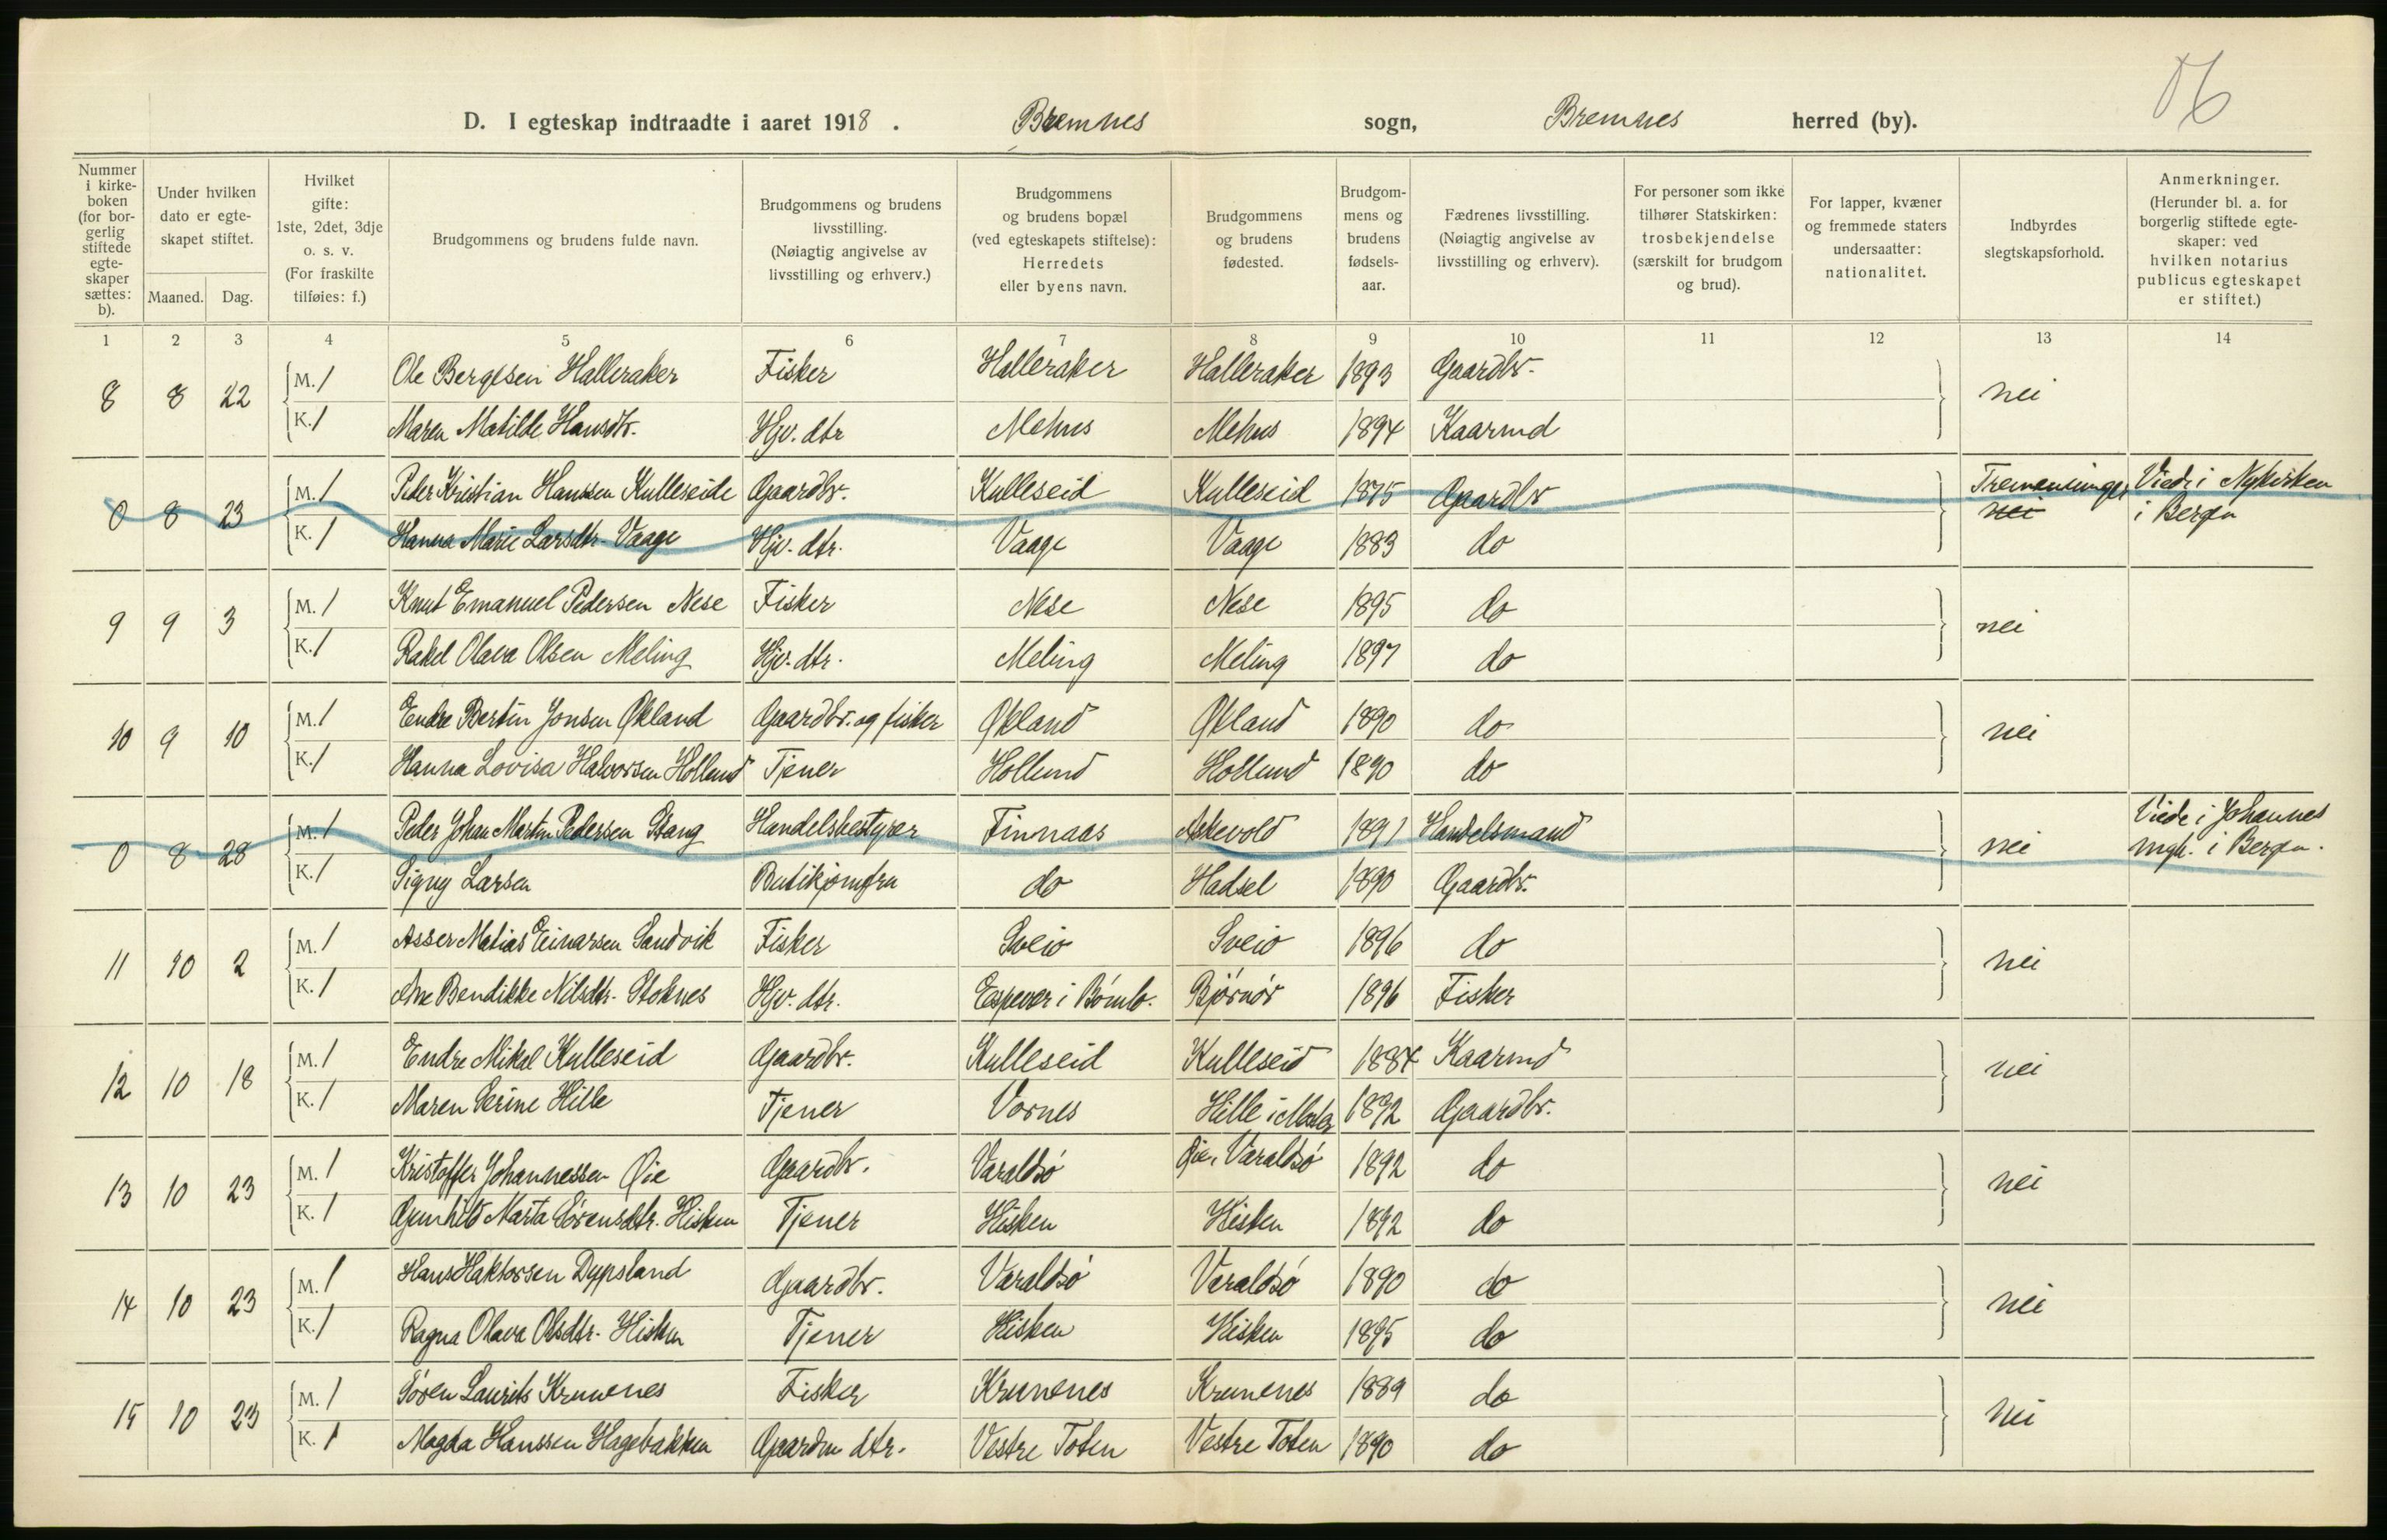 D. I egteskap indtraadte i aaret 1918. Bremnes sogn, Bremnes herred (by).
Nummer i kirkeboken (for borgerlig stiftede egteskaper sættes: b).
Under hvilken dato er egteskapet stiftet.
Maaned. Dag.
Hvilket gifte: 1ste, 2det, 3dje o. s. v. (For fraskilte tilføies: f.)
Brudgommens og brudens fulde navn.
Brudgommens og brudens livsstilling. (Nøiagtig angivelse av livsstilling og erhverv.)
Brudgommens og brudens bopæl (ved egteskapets stiftelse): Herredets eller byens navn.
Brudgommens og brudens fødested.
Brudgommens og brudens fødselsaar.
Fædrenes livsstilling. (Nøiagtig angivelse av livsstilling og erhverv).
For personer som ikke tilhører Statskirken: trosbekjendelse (særskilt for brudgom og brud).
For lapper, kvæner og fremmede staters undersaatter: nationalitet.
Indbyrdes slegtskapsforhold.
Anmerkninger. (Herunder bl. a. for borgerlig stiftede egteskaper: ved hvilken notarius publicus egteskapet er stiftet.)
1 2 3 4 5 6 7 8 9 10 11 12 13 14
8 8 22 M. 1 Ole Bergesen Halleraker Fisker Halleraker Halleraker 1893 Gaardbr. nei
K. 1 Maren Matilde Hansdtr. Hjv. dtr Mehus Mehus 1894 Kaarmd
0 8 23 M. 1 Peder Kristian Hanssen Kulleseide Gaardbr. Kulleseid Kulleseid 1875 Gaardbr Tremenninger nei Viede i Nykirken
K. 1 Hanna Marie Larsdtr. Vaage Hjv. dtr. Vaage Vaage 1883 do i Bergen
9 9 3 M. 1 Knut Emanuel Pedersen Nese Fisker Nese Nese 1895 do nei
K. 1 Rakel Olava Olsen Meling Hjv. dtr. Meling Meling 1897 do
10 9 10 M. 1 Endre Bertin Jonsen Økland Gaardbr. og fisker Økland Økland 1890 do nei
K. 1 Hanna Lovisa Halvorsen Hollund Tjener Hollund Hollund 1890 do
0 8 28 M. 1 Peder Johan Martin Pedersen Handelsbestyrer Finnaas Askevold 1891 Handelsmand nei Viede i Johannes
K. 1 Signy Larsen Butikjomfru do Hadsel 1890 Gaardbr. mgh. i Bergen.
11 10 2 M. 1 Asser Matias Einarsen Sandvik Fisker Sveio Sveio 1896 do nei
K. 1 Ane Bendikke Nilsdtr. Stoknes Hjv. dtr. Espevær i Bømlo. Bjørnør 1896 Fisker
12 10 18 M. 1 Endre Mikal Kulleseid Gaardbr. Kulleseid Kulleseid 1884 Kaarmd nei
K. 1 Maren Serine Hille Tjener Vornes Hille i 1892 Gaardbr.
13 10 23 M. 1 Kristoffer Johannessen Øie Gaardbr. Varaldsø Øie, Varaldsø 1892 do nei
K. 1 Gunhild Marta Sørensdtr. Hisken Tjener Hisken Hisken 1892 do
14 10 23 M. 1 Hans Haktorsen Dypsland Gaardbr. Varaldsø Varaldsø 1890 do nei
K. 1 Ragna Olava Olsdtr. Hisken Tjener Hisken Hisken 1895 do
15 10 23 M. 1 Søren Laurits Kruunenes Fisker Krunenes Krunenes 1889 do nei
K. 1 Magda Hanssen Hagebakken Gaardm dtr. Vestre Toten Vestre Toten 1890 do